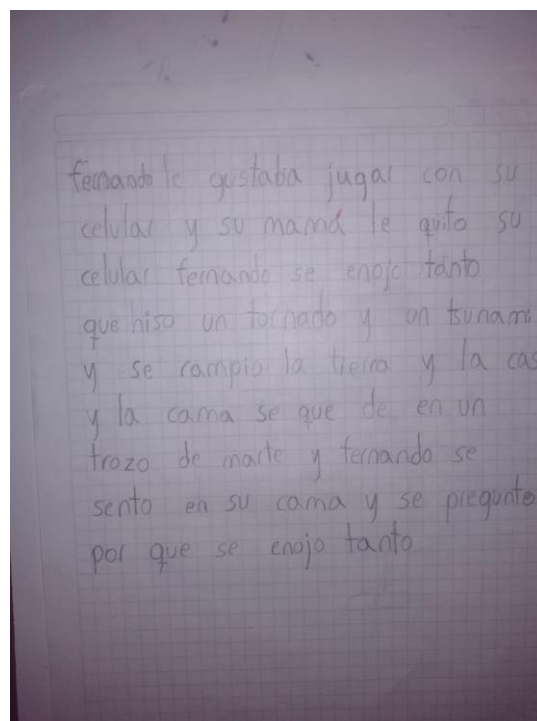 fernando le gustaba jugar con su
celular y su mamá le quito su
celular fernando se enojo tanto
que hiso un tornado y un tsunami
y se rampio la tierra y la cas
y la cama se que de en un
trozo de marte y fernando se
sento en su cama y se pregunto
por que se enojo tanto